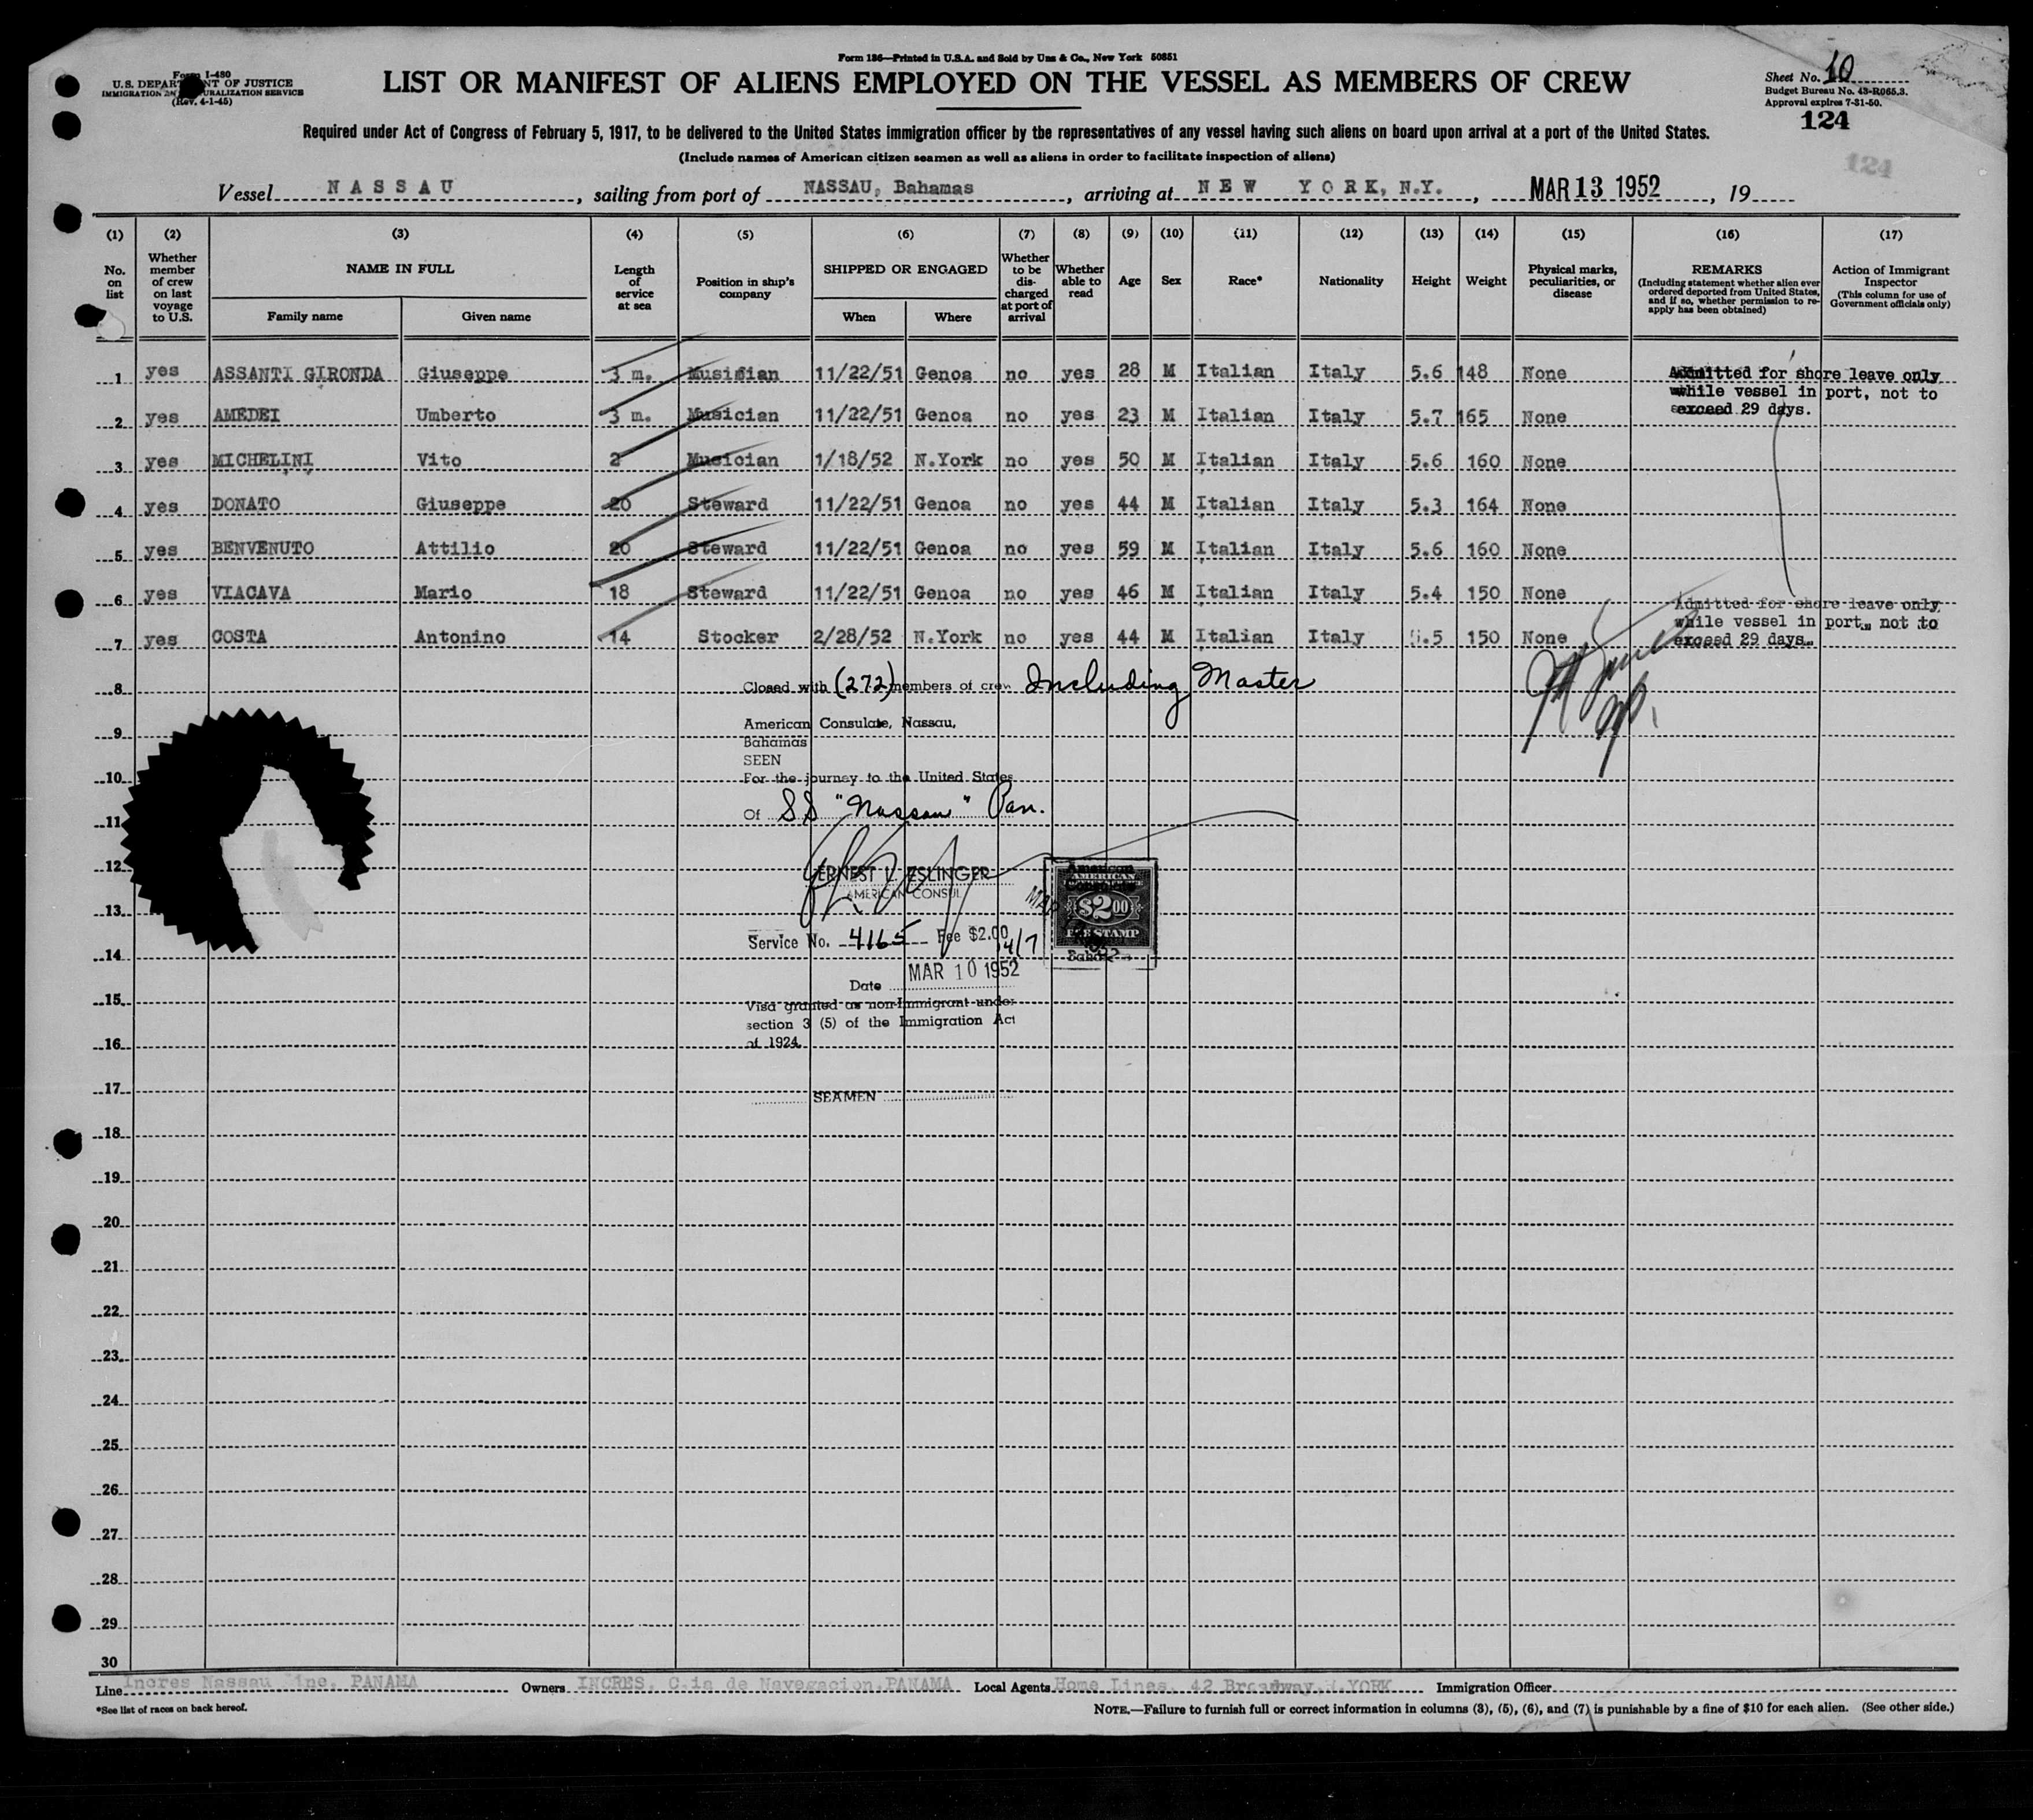 Form 186—Printed in U.S.A. and Sold by Unz & Co., New York 50851
Form I-480
U.S. DEPARTMENT OF JUSTICE
IMMIGRATION AND NATURALIZATION SERVICE
(Rev. 4-1-45)
LIST OR MANIFEST OF ALIENS EMPLOYED ON THE VESSEL AS MEMBERS OF CREW
Sheet No. 10
Budget Bureau No. 43-R065.3.
Approval expires 7-31-50.
124
124
Required under Act of Congress of February 5, 1917, to be delivered to the United States immigration officer by the representatives of any vessel having such aliens on board upon arrival at a port of the United States.
(Include names of American citizen seamen as well as aliens in order to facilitate inspection of aliens)
Vessel NASSAU, sailing from port of NASSAU, Bahamas, arriving at NEW YORK, N.Y., MAR 13 1952, 19
(1) (2) (3) (4) (5) (6) (7) (8) (9) (10) (11) (12) (13) (14) (15) (16) (17)
No. on list
Whether member of crew on last voyage to U.S.
NAME IN FULL
Family name
Given name
Length of service at sea
Position in ship's company
SHIPPED OR ENGAGED
When
Where
Whether to be discharged at port of arrival
Whether able to read
Age
Sex
Race*
Nationality
Height
Weight
Physical marks, peculiarities, or disease
REMARKS
(Including statement whether alien ever ordered deported from United States, and if so, whether permission to reapply has been obtained)
Action of Immigrant Inspector
(This column for use of Government officials only)
1 yes ASSANTI GIRONDA Giuseppe 3 m. Musician 11/22/51 Genoa no yes 28 M Italian Italy 5.6 148 None
2 yes AMEDEI Umberto 3 m. Musician 11/22/51 Genoa no yes 23 M Italian Italy 5.7 165 None
3 yes MICHELINI Vito 2 Musician 1/18/52 N.York no yes 50 M Italian Italy 5.6 160 None
4 yes DONATO Giuseppe 20 Steward 11/22/51 Genoa no yes 44 M Italian Italy 5.3 164 None
5 yes BENVENUTO Attilio 20 Steward 11/22/51 Genoa no yes 59 M Italian Italy 5.6 160 None
6 yes VIACAVA Mario 18 Steward 11/22/51 Genoa no yes 46 M Italian Italy 5.4 150 None
7 yes COSTA Antonino 14 Stocker 2/28/52 N.York no yes 44 M Italian Italy .5 150 None
Admitted for shore leave only
while vessel in port, not to
exceed 29 days.
Admitted for shore leave only
while vessel in port, not to
exceed 29 days.
8
Closed with (272) members of crew Including Master
9
American Consulate, Nassau,
Bahamas
SEEN
10
For the journey to the United States
11
Of SS "Nassau" Pan.
12
ERNEST L. ESLINGER
AMERICAN CONSUL
American
AMERICAN
$2.00
FEE STAMP
13
14
Service No. 4165 Fee $2.00
4/7
Date MAR 10 1952
15
Visa granted as non-Immigrant under
section 3 (5) of the Immigration Act
of 1924.
16
17
SEAMEN
18
19
20
21
22
23
24
25
26
27
28
29
30
Line Incres Nassau Line, PANAMA Owners INCRES, C.ia de Navegacion, PANAMA Local Agents Home Lines, 42 Broadway, N.YORK Immigration Officer
*See list of races on back hereof.
NOTE.—Failure to furnish full or correct information in columns (3), (5), (6), and (7) is punishable by a fine of $10 for each alien. (See other side.)